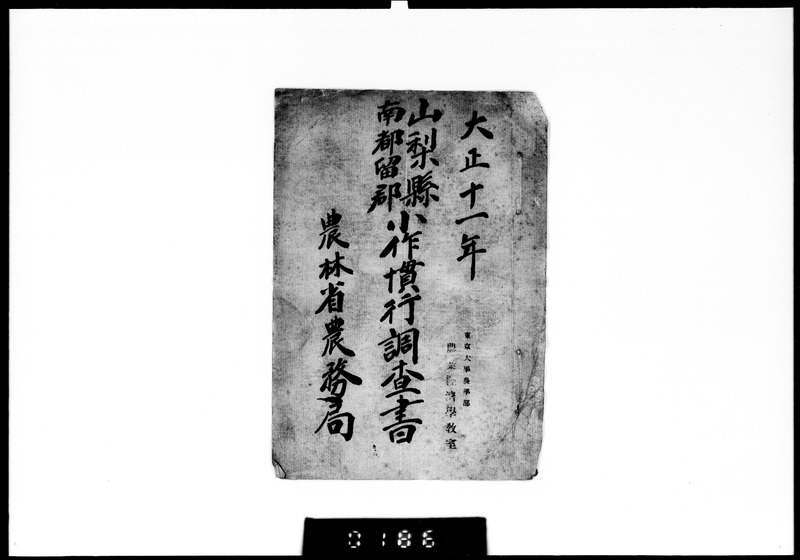 大正十一年
山梨縣
南都留郡
小作慣行調査書
農林省農務局
東京大學農學部
農業經濟學教室
0186